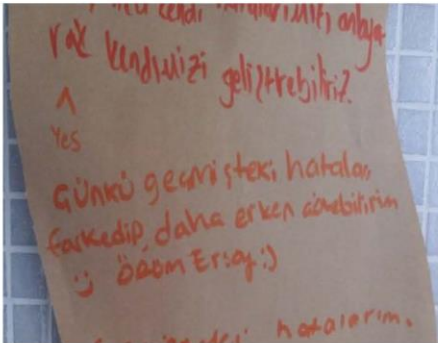 kendi hatalarımızı anlaya
rak kendimizi geliştrebiliriz.
^
Yes
Günkü geçmişteki hataları
farkedip, daha erken görebilirim
Ersoy :)
hatalarım.